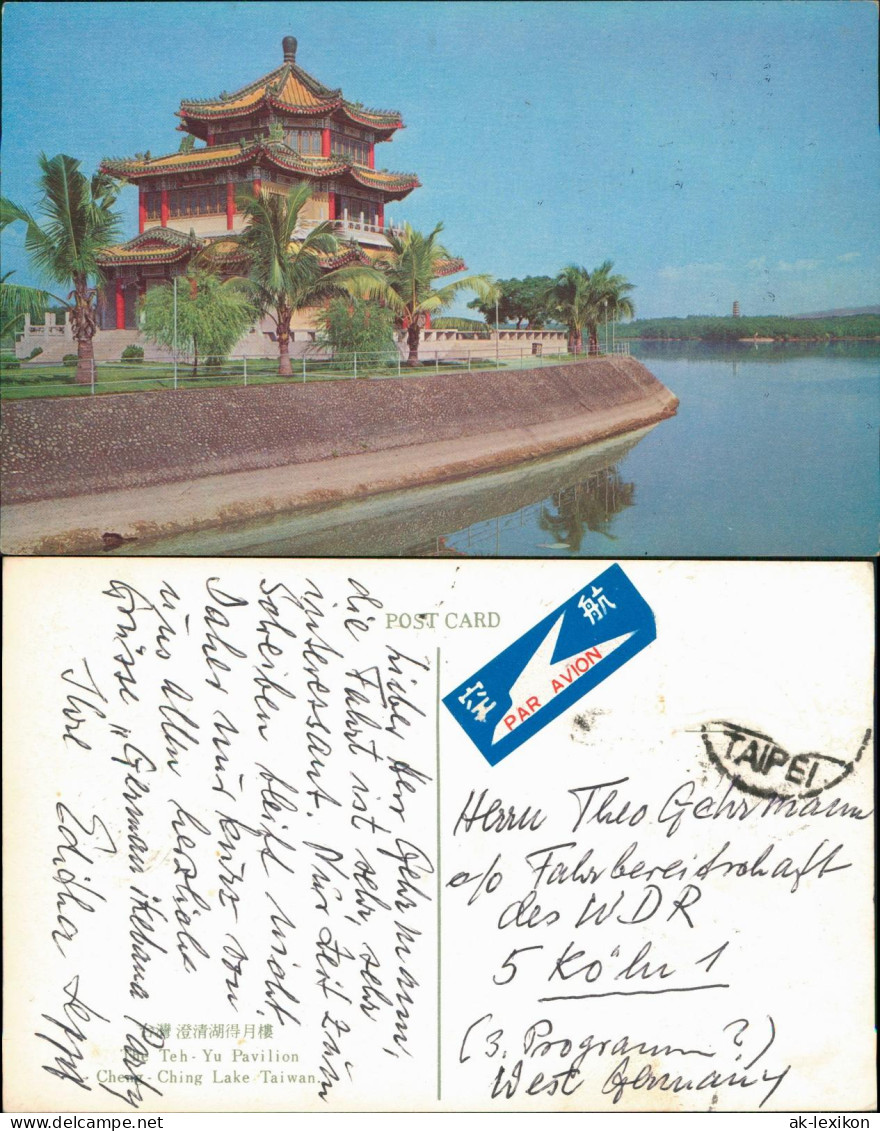 POST CARD
Lieber Herr Gehrmann,
die Fahrt ist sehr, sehr
interessant. Nur Zeit zum
Schreiben bleibt nicht.
Daher nur kurz von
uns allen herzliche
Grüsse „German Ikebana Party
Ihre
台灣 澄清湖得月樓
The Teh-Yu Pavilion
Cheng-Ching Lake Taiwan.
航空
PAR AVION
TAIPEI
Herrn Theo Gehrmann
c/o Fahrbereitschaft
des WDR
5 Köln 1
(3. Programm?)
West Germany
ak-lexikon
© ak-lexikon.de